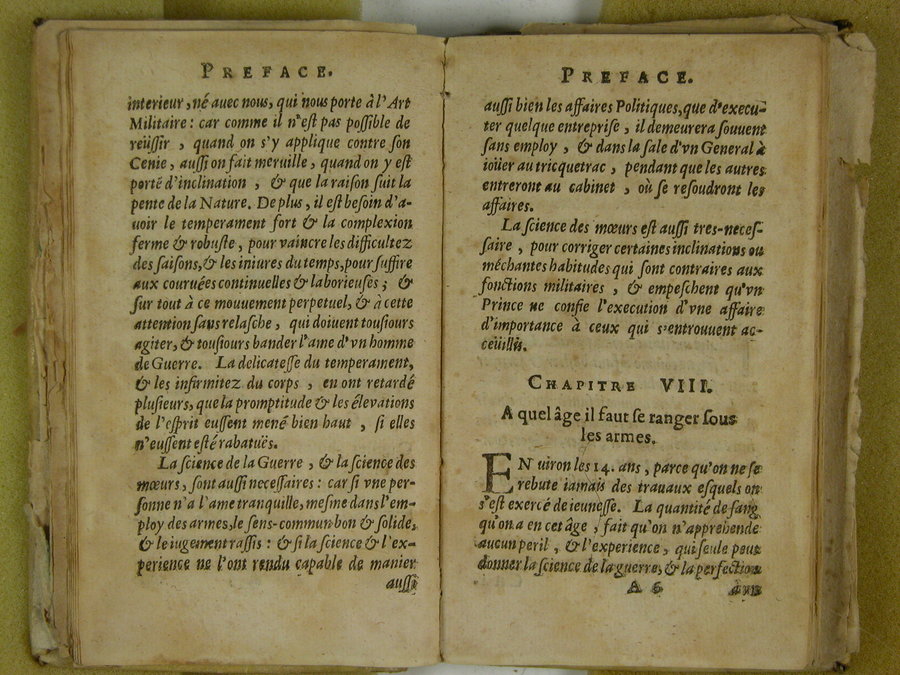 PREFACE.
interieur, né auec nous, qui nous porte à l'Art
Militaire : car comme il n'est pas possible de
reüssir, quand on s'y applique contre son
Genie, aussi on fait merueille, quand on y est
porté d'inclination, & que la raison suit la
pente de la Nature. De plus, il est besoin d'a-
uoir le temperament fort & la complexion
ferme & robuste, pour vaincre les difficultez
des saisons, & les iniures du temps, pour suffire
aux couruées continuelles & laborieuses; &
sur tout à ce mouuement perpetuel, & à cette
attention sans relasche, qui doiuent tousiours
agiter, & tousiours bander l'ame d'vn homme
de Guerre. La delicatesse du temperament,
& les infirmitez du corps, en ont retardé
plusieurs, que la promptitude & les élevations
de l'esprit eussent mené bien haut, si elles
n'eussent esté rabatuës.
La science de la Guerre, & la science des
mœurs, sont aussi necessaires : car si vne per-
sonne n'a l'ame tranquille, mesme dans l'em-
ploy des armes, le sens-commun bon & solide,
& le iugement rassis : & si la science & l'ex-
perience ne l'ont rendu capable de manier
aussi
PREFACE.
aussi bien les affaires Politiques, que d'execu-
ter quelque entreprise, il demeurera souuent
sans employ, & dans la sale d'vn General à
ioüer au tricquetrac, pendant que les autres
entreront au cabinet, où se resoudront les
affaires.
La science des mœurs est aussi tres-neces-
saire, pour corriger certaines inclinations ou
méchantes habitudes qui sont contraires aux
fonctions militaires, & empeschent qu'vn
Prince ne confie l'execution d'vne affaire
d'importance à ceux qui s'entrouuent ac-
ceüillis.
CHAPITRE VIII.
A quel âge il faut se ranger sous
les armes.
ENuiron les 14. ans, parce qu'on ne se
rebute iamais des trauaux esquels on
s'est exercé de ieunesse. La quantité de sang
qu'on a en cet âge, fait qu'on n'apprehende
aucun peril, & l'experience, qui seule peut
donner la science de la guerre, & la perfection
A 6